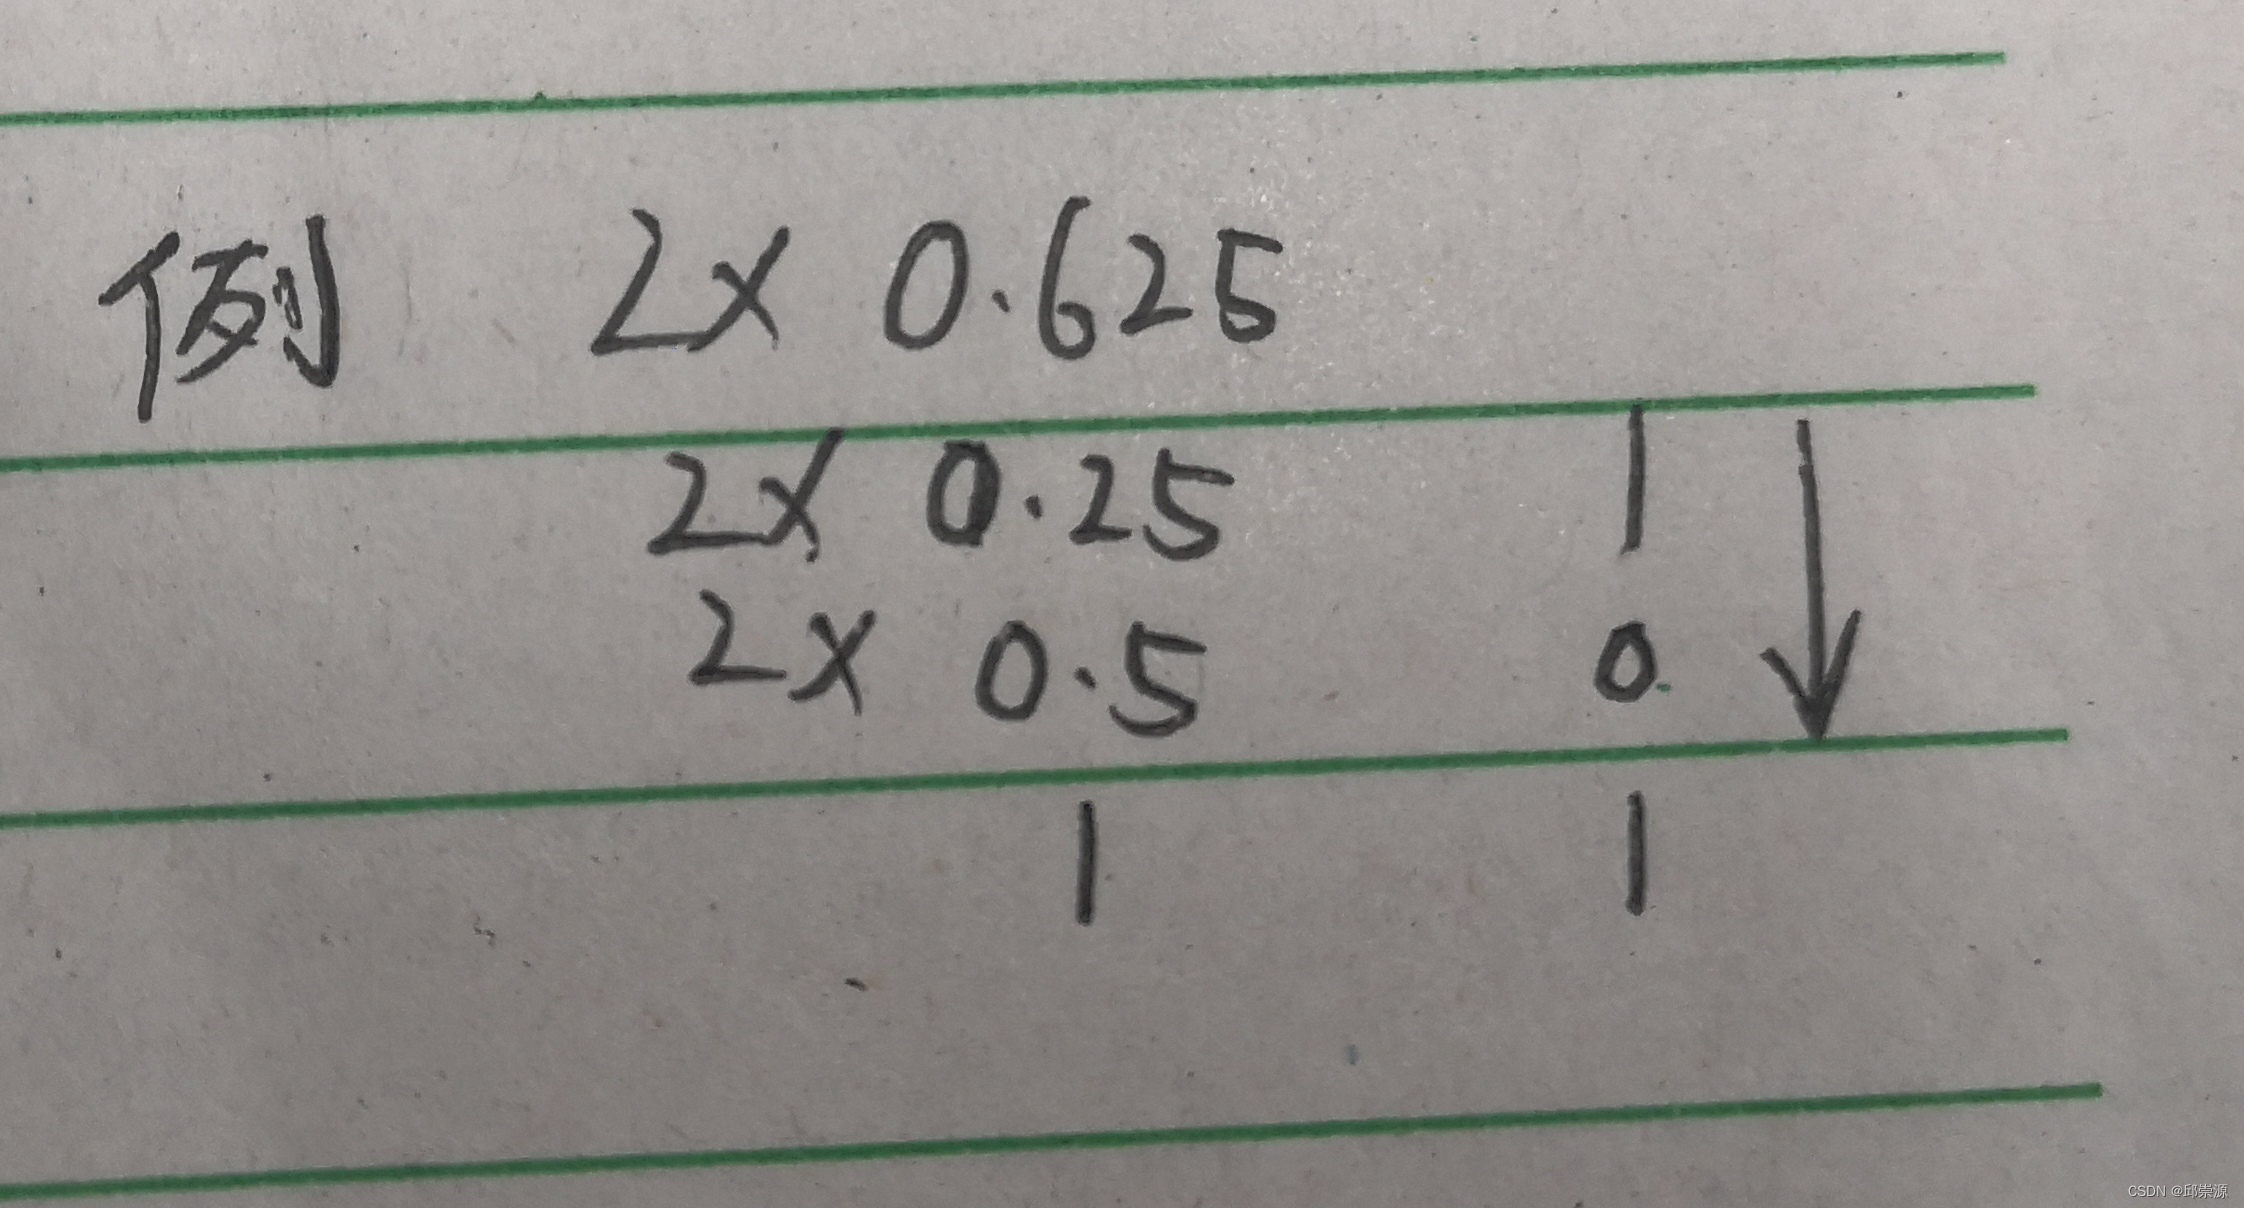 例 2× 0.625
2× 0.25 1
2× 0.5 0
1 1
CSDN @邱崇源